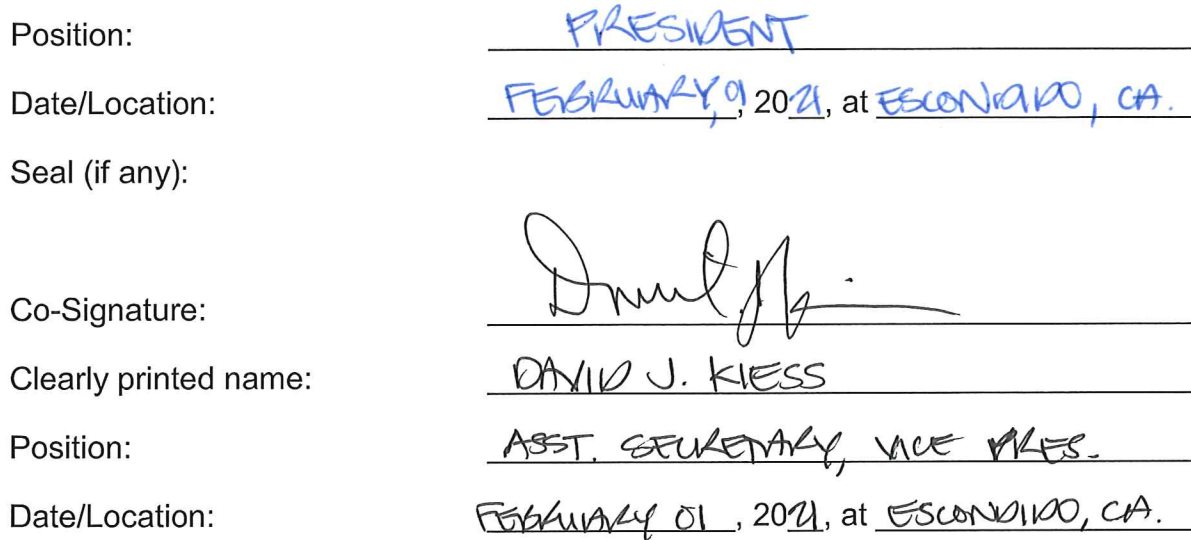 Position: PRESIDENT
Date/Location: FEBRUARY, 01, 2021, at ESCONDIDO, CA.
Seal (if any):
Co-Signature:
Clearly printed name: DAVID J. KIESS
Position: ASST. SECRETARY, VICE PRES.
Date/Location: FEBRUARY 01, 2021, at ESCONDIDO, CA.